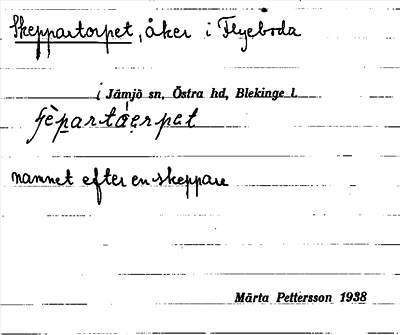 Skeppartorpet, åker i Flyeboda
i Jämjö sn, Östra hd, Blekinge l.
namnet efter en skeppare
Märta Pettersson 1938